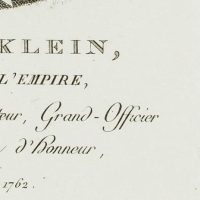 KLEIN,
L'EMPIRE,
teur, Grand-Officier
d'Honneur,
1762.